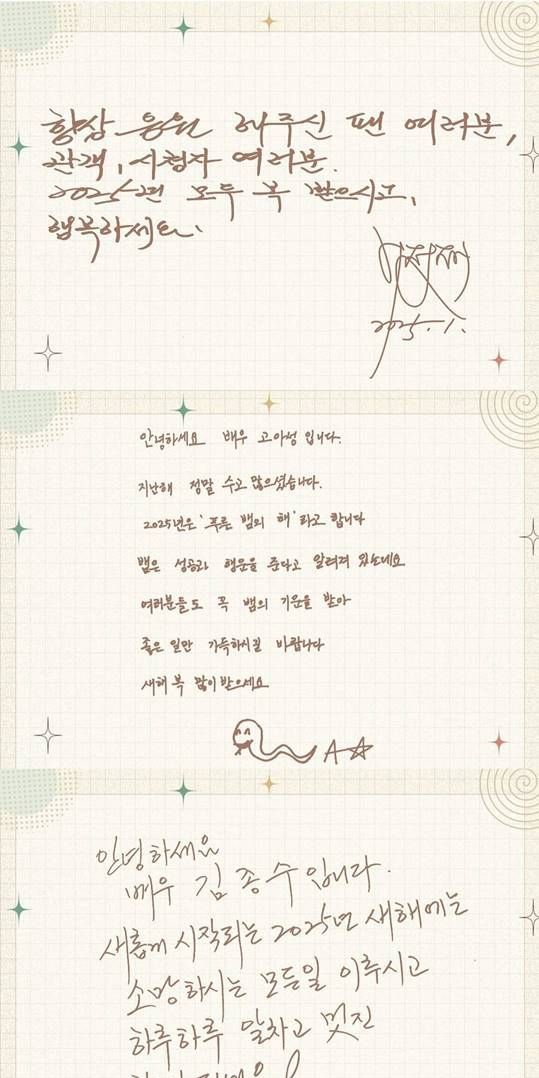 항상 응원 해주신 팬 여러분,
관객, 시청자 여러분.
2025년 모두 복 받으시고,
행복하세요.
2025. 1.
안녕하세요 배우 고아성 입니다.
지난해 정말 수고 많으셨습니다.
2025년은 '푸른 뱀의 해'라고 합니다
뱀은 성공과 행운을 준다고 알려져 있는데요
여러분들도 꼭 뱀의 기운을 받아
좋은 일만 가득하시길 바랍니다
새해 복 많이 받으세요
A☆
안녕하세요
배우 김종수 입니다.
새롭게 시작되는 2025년 새해에는
소망하시는 모든일 이루시고
하루하루 알차고 멋진